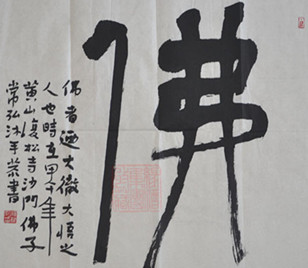 佛
佛者迺大徹大悟之
人也時在甲午年
黄山復松寺沙門佛子
常弘沐手恭書